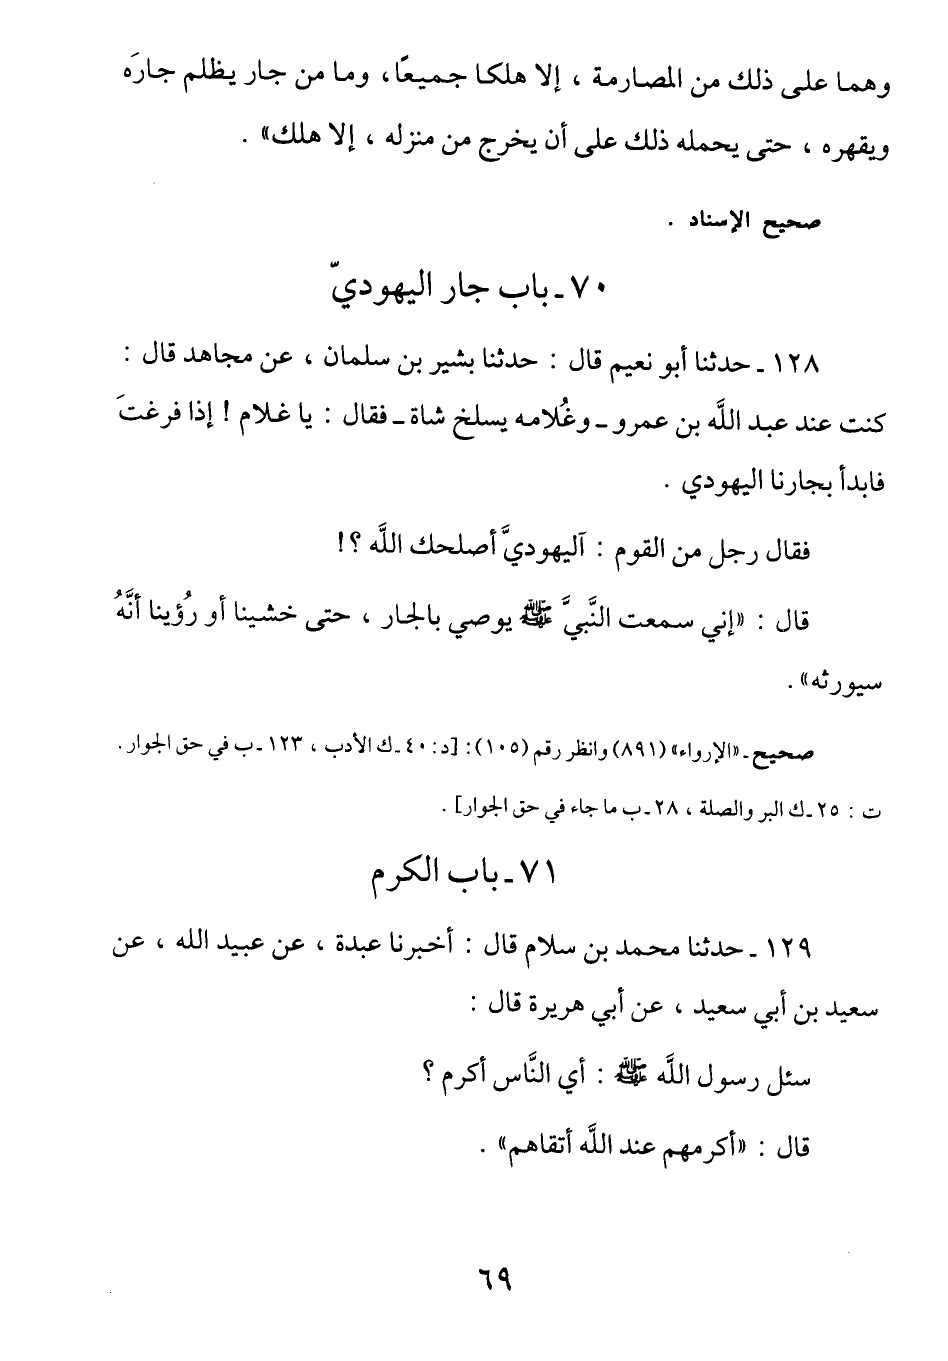 وهما على ذلك من المصارمة ، إلا هلكا جميعًا، وما من جار يظلم جارَه
ويقهره ، حتى يحمله ذلك على أن يخرج من منزله ، إلا هلك» .
صحيح الإسناد .
٧٠ ـ باب جار اليهوديّ
١٢٨ ـ حدثنا أبو نعيم قال : حدثنا بشير بن سلمان ، عن مجاهد قال :
كنت عند عبد اللَّه بن عمرو ـ وغُلامه يسلخ شاة ـ فقال : يا غلام ! إذا فرغتَ
فابدأ بجارنا اليهودي .
فقال رجل من القوم : آليهوديَّ أصلحك اللَّه ؟!
قال : «إني سمعت النَّبيَّ ﷺ يوصي بالجار ، حتى خشينا أو رُؤينا أنَّهُ
سيورثه» .
صحيح ـ «الإرواء» (٨٩١) وانظر رقم (١٠٥): [د: ٤٠ ـ ك الأدب ، ١٢٣ ـ ب في حق الجوار .
ت : ٢٥ ـ ك البر والصلة ، ٢٨ ـ ب ما جاء في حق الجوار] .
٧١ ـ باب الكرم
١٢٩ ـ حدثنا محمد بن سلام قال : أخبرنا عبدة ، عن عبيد الله ، عن
سعيد بن أبي سعيد ، عن أبي هريرة قال :
سئل رسول اللَّه ﷺ : أي النَّاس أكرم ؟
قال : «أكرمهم عند اللَّه أتقاهم» .
٦٩